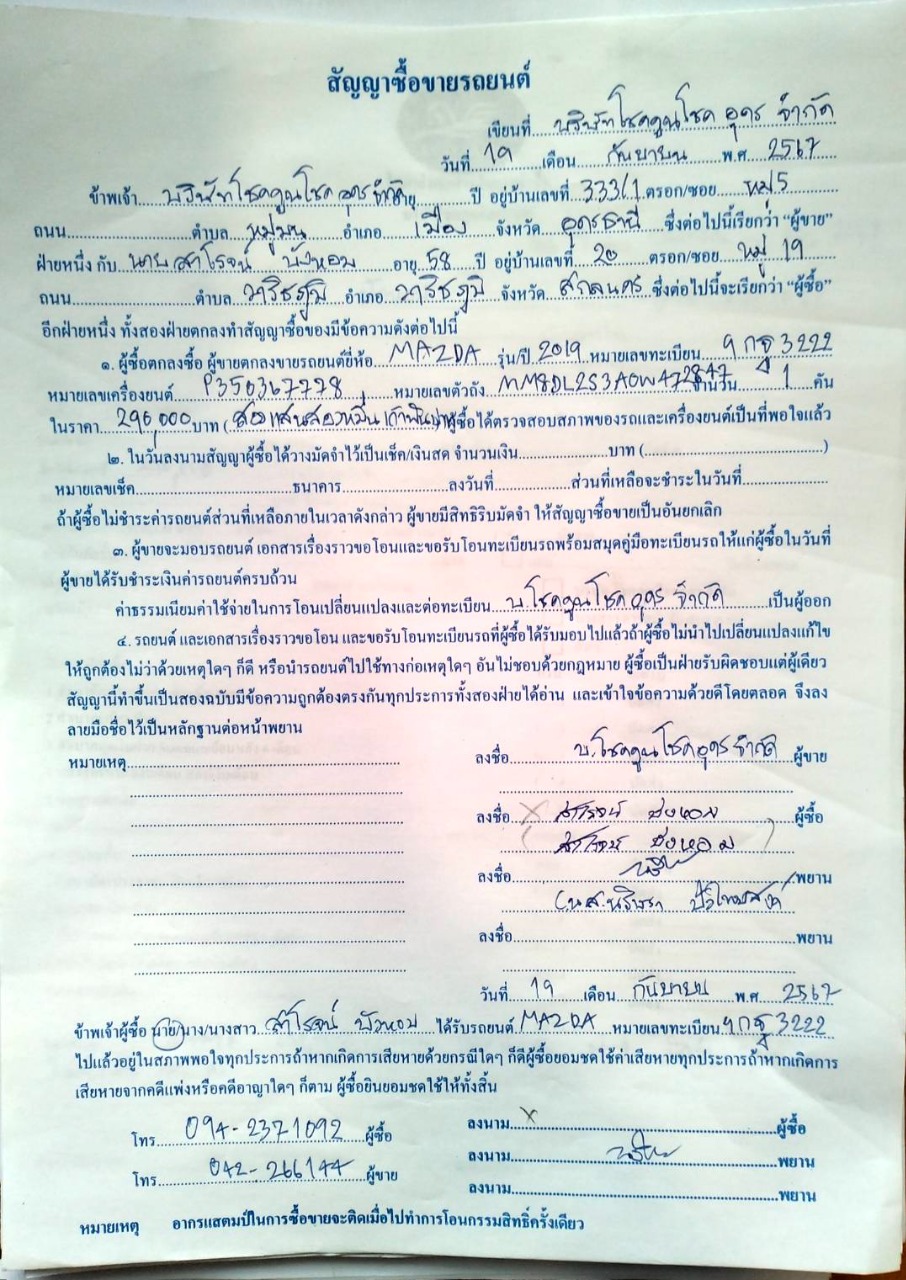 สัญญาซื้อขายรถยนต์
เขียนที่ บริษัทโชคคูนโชค อุดร จำกัด
วันที่ 19 เดือน กันยายน พ.ศ 2567
ข้าพเจ้า บริษัทโชคคูนโชค อุดร จำกัด อายุ ปี อยู่บ้านเลขที่ 333/1 ตรอก/ซอย หมู่ 5
ถนน ตำบล หมูม่น อำเภอ เมือง จังหวัด อุดรธานี ซึ่งต่อไปนี้เรียกว่า “ผู้ขาย”
ฝ่ายหนึ่ง กับ นายสาโรจน์ บังหอม อายุ 58 ปี อยู่บ้านเลขที่ 20 ตรอก/ซอย หมู่ 19
ถนน ตำบล วาริชภูมิ อำเภอ วาริชภูมิ จังหวัด สกลนคร ซึ่งต่อไปนี้จะเรียกว่า “ผู้ซื้อ”
อีกฝ่ายหนึ่ง ทั้งสองฝ่ายตกลงทำสัญญาซื้อของมีข้อความดังต่อไปนี้
๑. ผู้ซื้อตกลงซื้อ ผู้ขายตกลงขายรถยนต์ยี่ห้อ MAZDA รุ่น/ปี 2019 หมายเลขทะเบียน 9 กฐ 3222
หมายเลขเครื่องยนต์ P350367778 หมายเลขตัวถัง MM8DL2S3A0W472847 จำนวน 1 คัน
ในราคา 290,000 บาท ( ) ผู้ซื้อได้ตรวจสอบสภาพของรถและเครื่องยนต์เป็นที่พอใจแล้ว
๒. ในวันลงนามสัญญาผู้ซื้อได้วางมัดจำไว้เป็นเช็ค/เงินสด จำนวนเงิน บาท ( )
หมายเลขเช็ค ธนาคาร ลงวันที่ ส่วนที่เหลือจะชำระในวันที่
ถ้าผู้ซื้อไม่ชำระค่ารถยนต์ส่วนที่เหลือภายในเวลาดังกล่าว ผู้ขายมีสิทธิริบมัดจำ ให้สัญญาซื้อขายเป็นอันยกเลิก
๓. ผู้ขายจะมอบรถยนต์ เอกสารเรื่องราวขอโอนและขอรับโอนทะเบียนรถพร้อมสมุดคู่มือทะเบียนรถให้แก่ผู้ซื้อในวันที่
ผู้ขายได้รับชำระเงินค่ารถยนต์ครบถ้วน
ค่าธรรมเนียมค่าใช้จ่ายในการโอนเปลี่ยนแปลงและต่อทะเบียน บ.โชคคูนโชคอุดร จำกัด เป็นผู้ออก
๔. รถยนต์ และเอกสารเรื่องราวขอโอน และขอรับโอนทะเบียนรถที่ผู้ซื้อได้รับมอบไปแล้วถ้าผู้ซื้อไม่นำไปเปลี่ยนแปลงแก้ไข
ให้ถูกต้องไม่ว่าด้วยเหตุใดๆ ก็ดี หรือนำรถยนต์ไปใช้ทางก่อเหตุใดๆ อันไม่ชอบด้วยกฎหมาย ผู้ซื้อเป็นฝ่ายรับผิดชอบแต่ผู้เดียว
สัญญานี้ทำขึ้นเป็นสองฉบับมีข้อความถูกต้องตรงกันทุกประการทั้งสองฝ่ายได้อ่าน และเข้าใจข้อความด้วยดีโดยตลอด จึงลง
ลายมือชื่อไว้เป็นหลักฐานต่อหน้าพยาน
หมายเหตุ ลงชื่อ บ.โชคคูนโชคอุดร จำกัด ผู้ขาย
ลงชื่อ สาโรจน์ บังหอม ผู้ซื้อ
(สาโรจน์ บังหอม)
ลงชื่อ พยาน
(น.ส.นริษรา
ลงชื่อ พยาน
วันที่ 19 เดือน กันยายน พ.ศ 2567
ข้าพเจ้าผู้ซื้อ นาย/นาง/นางสาว สาโรจน์ บังหอม ได้รับรถยนต์ MAZDA หมายเลขทะเบียน 9 กฐ 3222
ไปแล้วอยู่ในสภาพพอใจทุกประการถ้าหากเกิดการเสียหายด้วยกรณีใดๆ ก็ดีผู้ซื้อยอมชดใช้ค่าเสียหายทุกประการถ้าหากเกิดการ
เสียหายจากคดีแพ่งหรือคดีอาญาใดๆ ก็ตาม ผู้ซื้อยินยอมชดใช้ให้ทั้งสิ้น
โทร 094-2371092 ผู้ซื้อ ลงนาม ผู้ซื้อ
ลงนาม พยาน
โทร 042-266144 ผู้ขาย ลงนาม พยาน
หมายเหตุ อากรแสตมป์ในการซื้อขายจะติดเมื่อไปทำการโอนกรรมสิทธิ์ครั้งเดียว